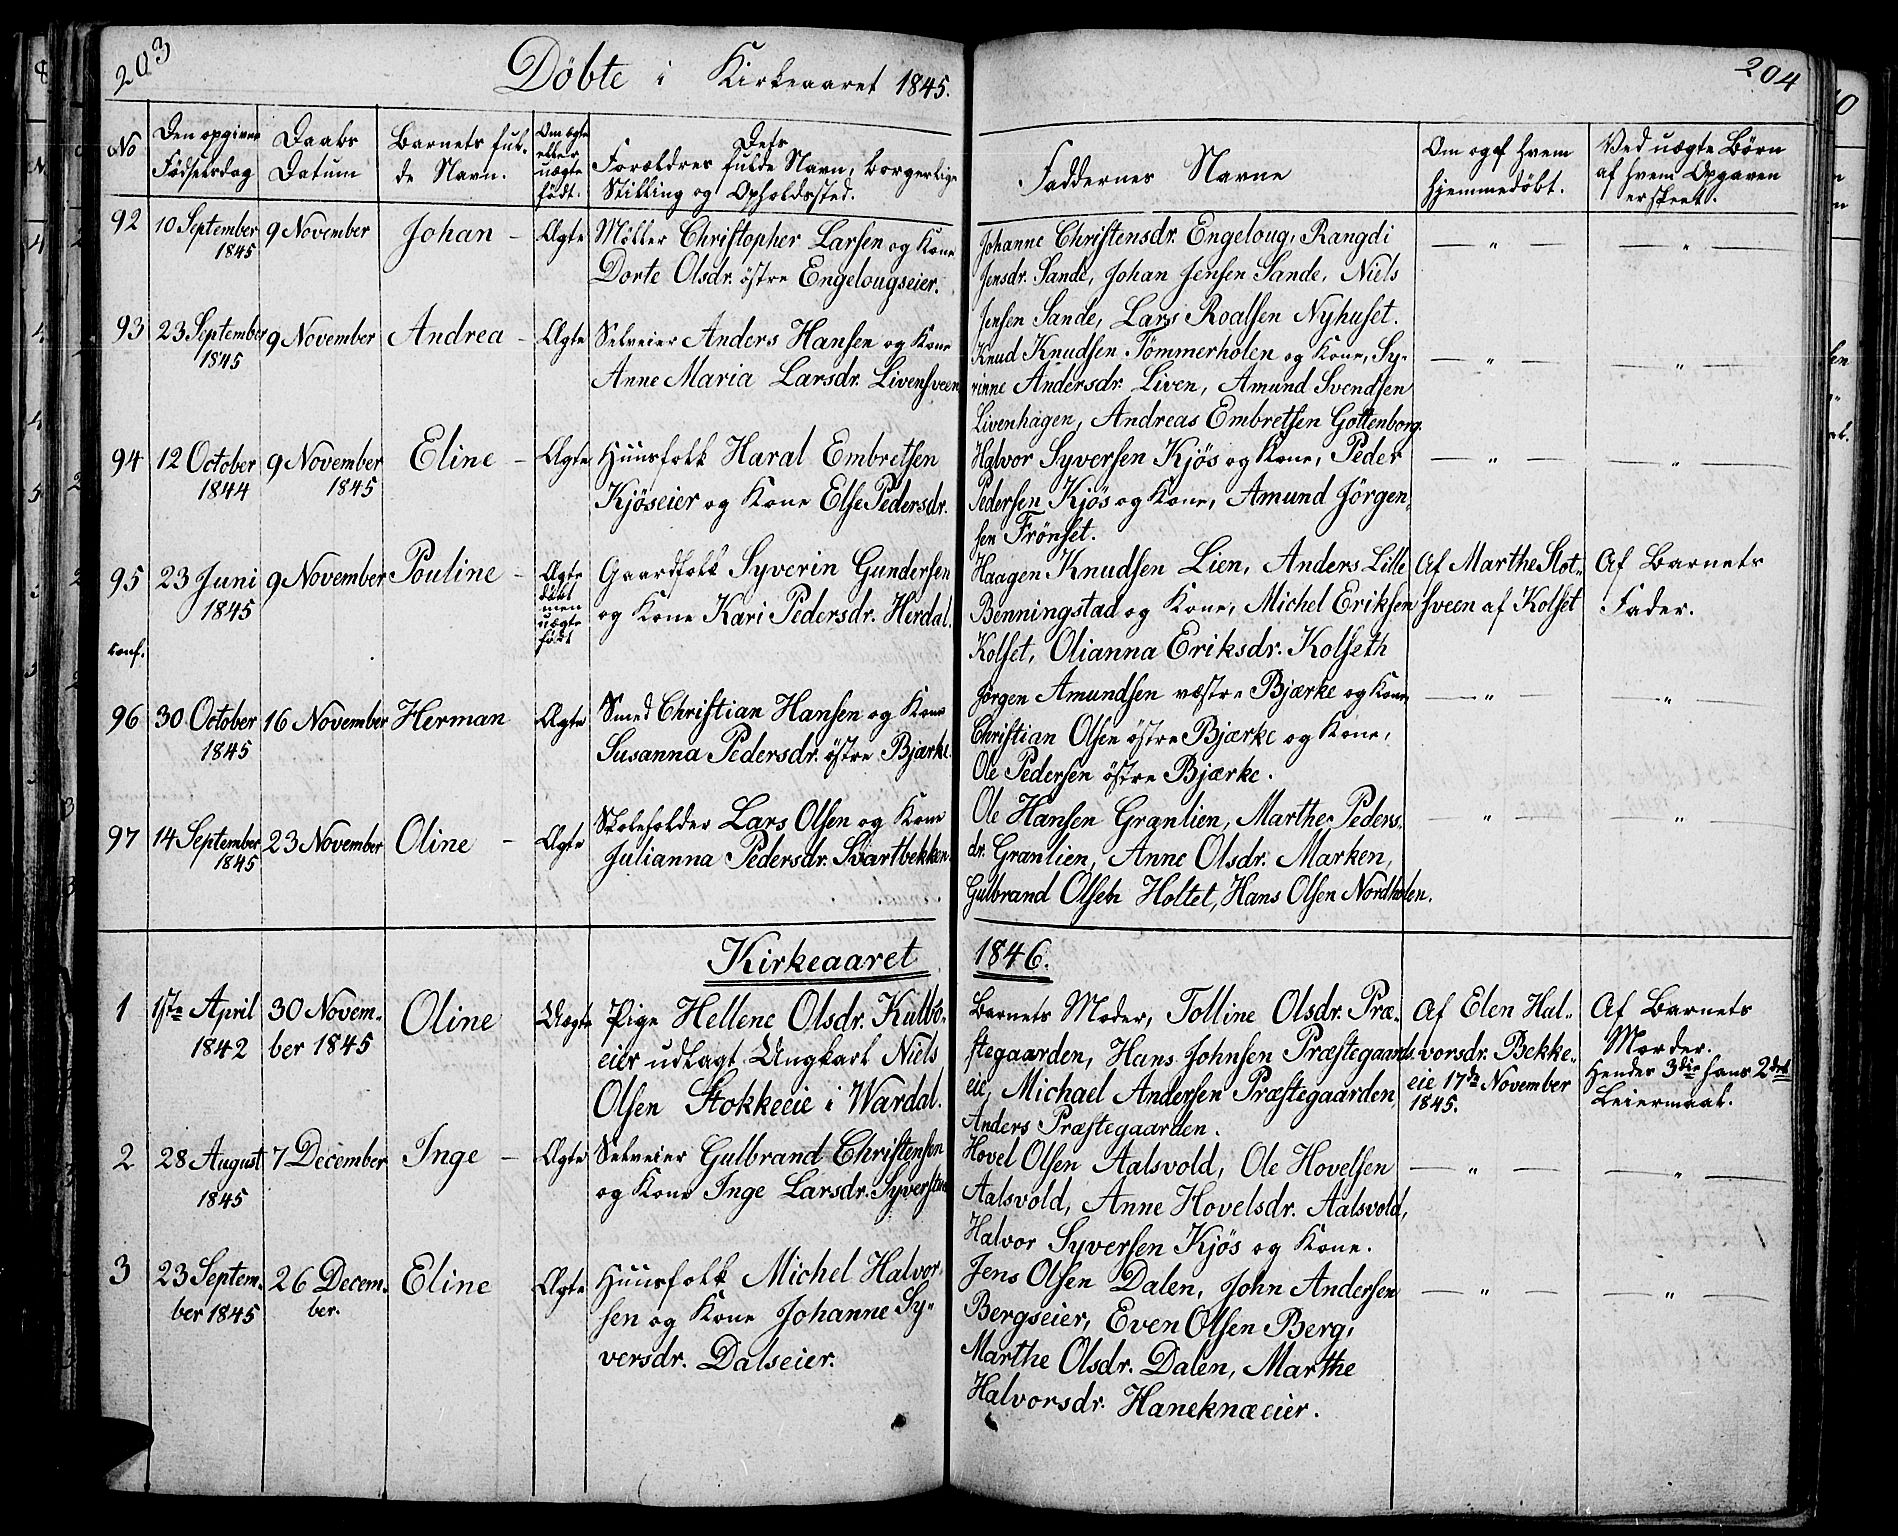 203
Döbte i Kirkeaaret 1845.
204
No
Den opgivne Födselsdag
Daabs Datum
Barnets fulde Navn.
Om ægte eller uægte födt.
Dets Forældres fulde Navn, borgerlige Stilling og Opholdssted.
Faddernes Navne
Om og af hvem hjemmedöbt.
Ved uægte Börn af hvem Opgaven er skeet.
92 10 September 9 November Johan - Ægte Möller Christopher Larsen og Kone
1845
Dorte Olsdr. östre Engelougseier.
Johanne Christensdr. Engeloug, Rangdi
Jensdr. Sande, Johan Jensen Sande, Niels
Jensen Sande, Lars Roalsen Nyhuset.
— " —
— " —
93 23 September 9 November Andrea - Ægte Selveier Anders Hansen og Kone
1845
Anne Maria Larsdr. Livensveen
Knud Knudsen Tömmerholen og Kone, Sy-
rinne Andersdr. Liven, Amund Svendsen
Livenhagen, Andreas Embretsen Gottenborg.
— " —
— " —
94 12 October 9 November Eline - Ægte Huusfolk Haral Embretsen
1844 1845
Kjöseier og Kone Else Pedersdr.
Halvor Syversen Kjös og Kone, Peder
Pedersen Kjös og Kone, Amund Jörgen-
sen Frönset.
— " —
— " —
95 23 Juni 9 November Pouline - Ægte Gaardfolk Syverin Gundersen
1845
döbt men uægte födt
og Kone Kari Pedersdr. Herdal.
conf.
Haagen Knudsen Lien, Anders Lille
Benningstad og Kone, Michel Eriksen
Kolset, Olianna Eriksdr. Kolseth
Af Marthe Slot-
sveen af Kolset
Af Barnets
Fader.
96 30 October 16 November Herman Ægte Smed Christian Hansen og Kone
1845
Susanna Pedersdr. östre Bjærke
Jörgen Amundsen væstre Bjærke og Kone
Christian Olsen östre Bjærke og Kone,
Ole Pedersen östre Bjærke.
— " —
— " —
97 14 September 23 November Oline - Ægte Skoleholder Lars Olsen og Kone
1845
Julianna Pedersdr. Svartbekken
Ole Hansen Granlien, Marthe Peders-
dr. Granlien, Anne Olsdr. Marken,
Gulbrand Olsen Holtet, Hans Olsen Nordholen.
— " —
— " —
Kirkeaaret 1846.
1 1ste April 30 Novem- Oline Uægte Pige Hellene Olsdr. Kulbo-
1842 ber 1845
eier udlagt Ungkarl Niels
Olsen Stokkeeie i Wardal.
Barnets Moder, Tolline Olsdr. Præ-
stegaarden, Hans Johnsen Præstegaards-
eie, Michael Andersen Præstegaarden,
Anders Præstegaarden.
Af Elen Hal-
vorsdr. Bekke-
eie 17de November
1845.
Af Barnets
Moder.
Hendes 3die hans 2det
Leiermaal.
2 28 August 7 December Inge - Ægte Selveier Gulbrand Christensen
1845
og Kone Inge Larsdr. Syverstue
Hovel Olsen Aalsvold, Ole Hovelsen
Aalsvold, Anne Hovelsdr. Aalsvold,
Halvor Syversen Kjös og Kone.
— " —
— " —
3 23 Septem- 26 Decem- Eline Ægte Huusfolk Michel Halvor-
ber 1845 ber.
sen og Kone Johanne Sy-
versdr. Dalseier.
Jens Olsen Dalen, John Andersen
Bergseier, Even Olsen Berg,
Marthe Olsdr. Dalen, Marthe
Halvorsdr. Haneknæeier.
— " —
— " —